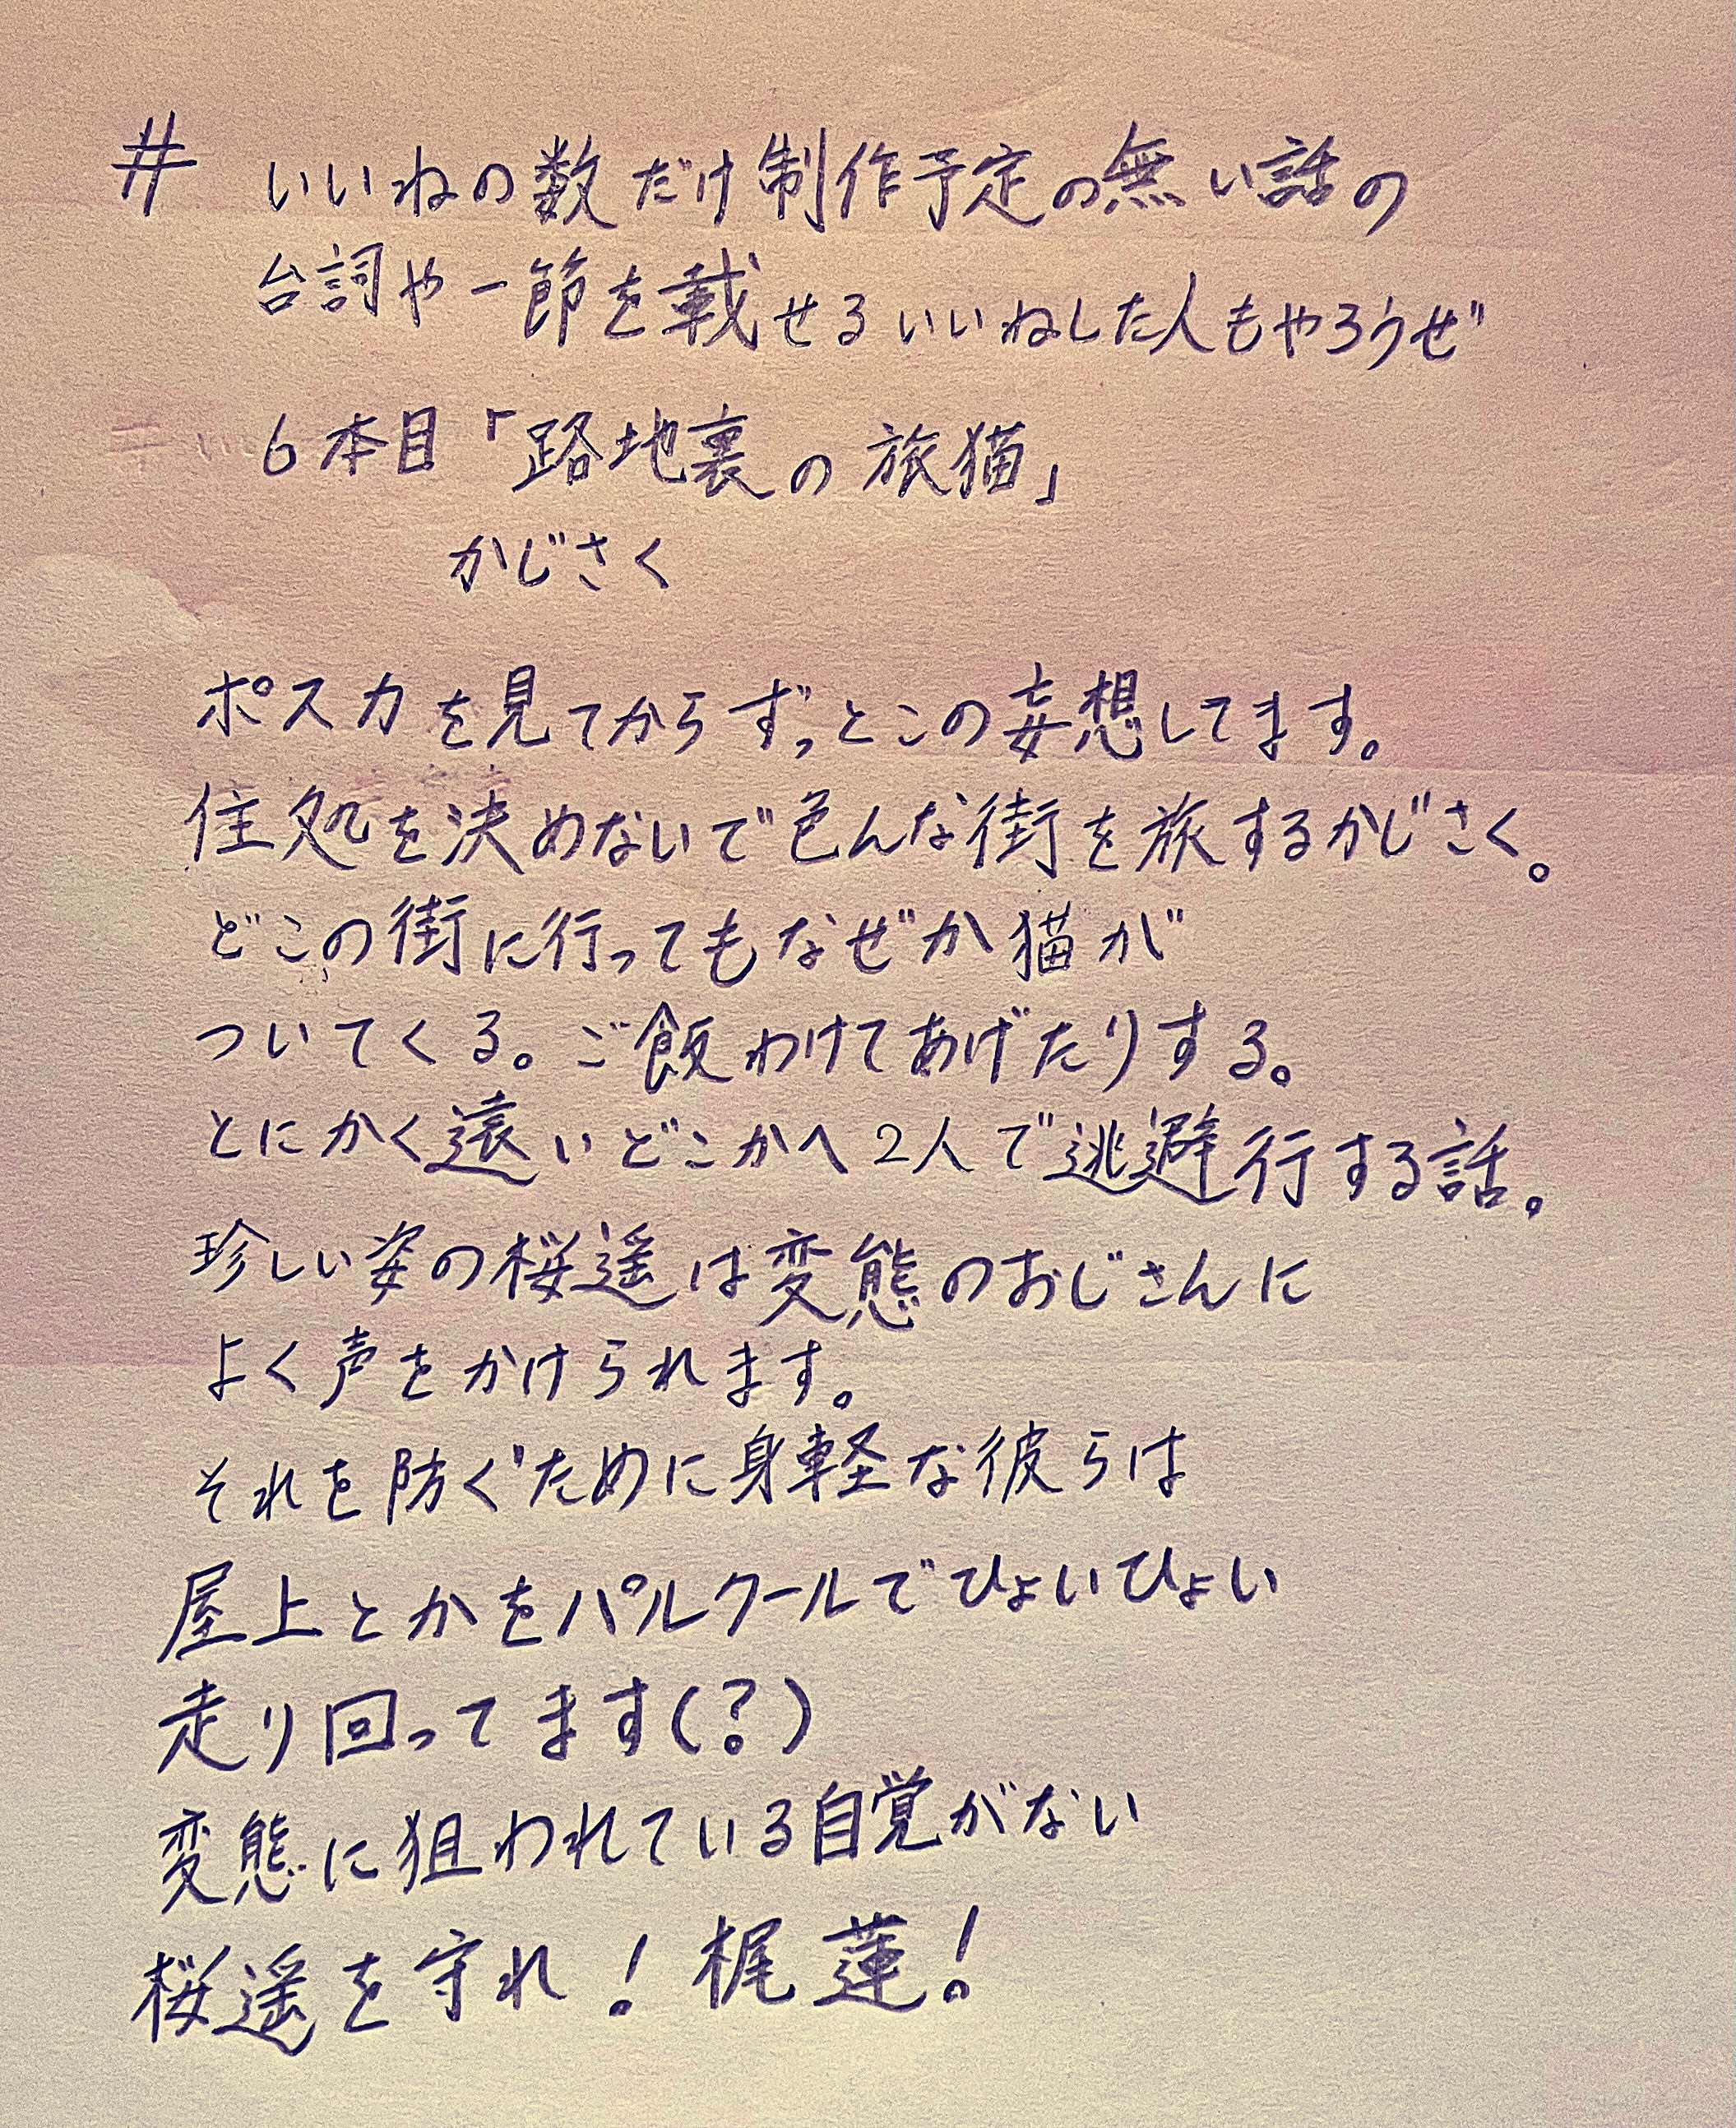 # いいねの数だけ制作予定の無い話の
台詞や一節を載せるいいねした人もやろうぜ
6本目「路地裏の旅猫」
かじさく
ポスカを見てからずっとこの妄想してます。
住処を決めないで色んな街を旅するかじさく。
どこの街に行ってもなぜか猫が
ついてくる。ご飯わけてあげたりする。
とにかく遠いどこかへ2人で逃避行する話。
珍しい姿の桜遥は変態のおじさんに
よく声をかけられます。
それを防ぐために身軽な彼らは
屋上とかをパルクールでひょいひょい
走り回ってます(?)
変態に狙われている自覚がない
桜遥を守れ!梶蓮!